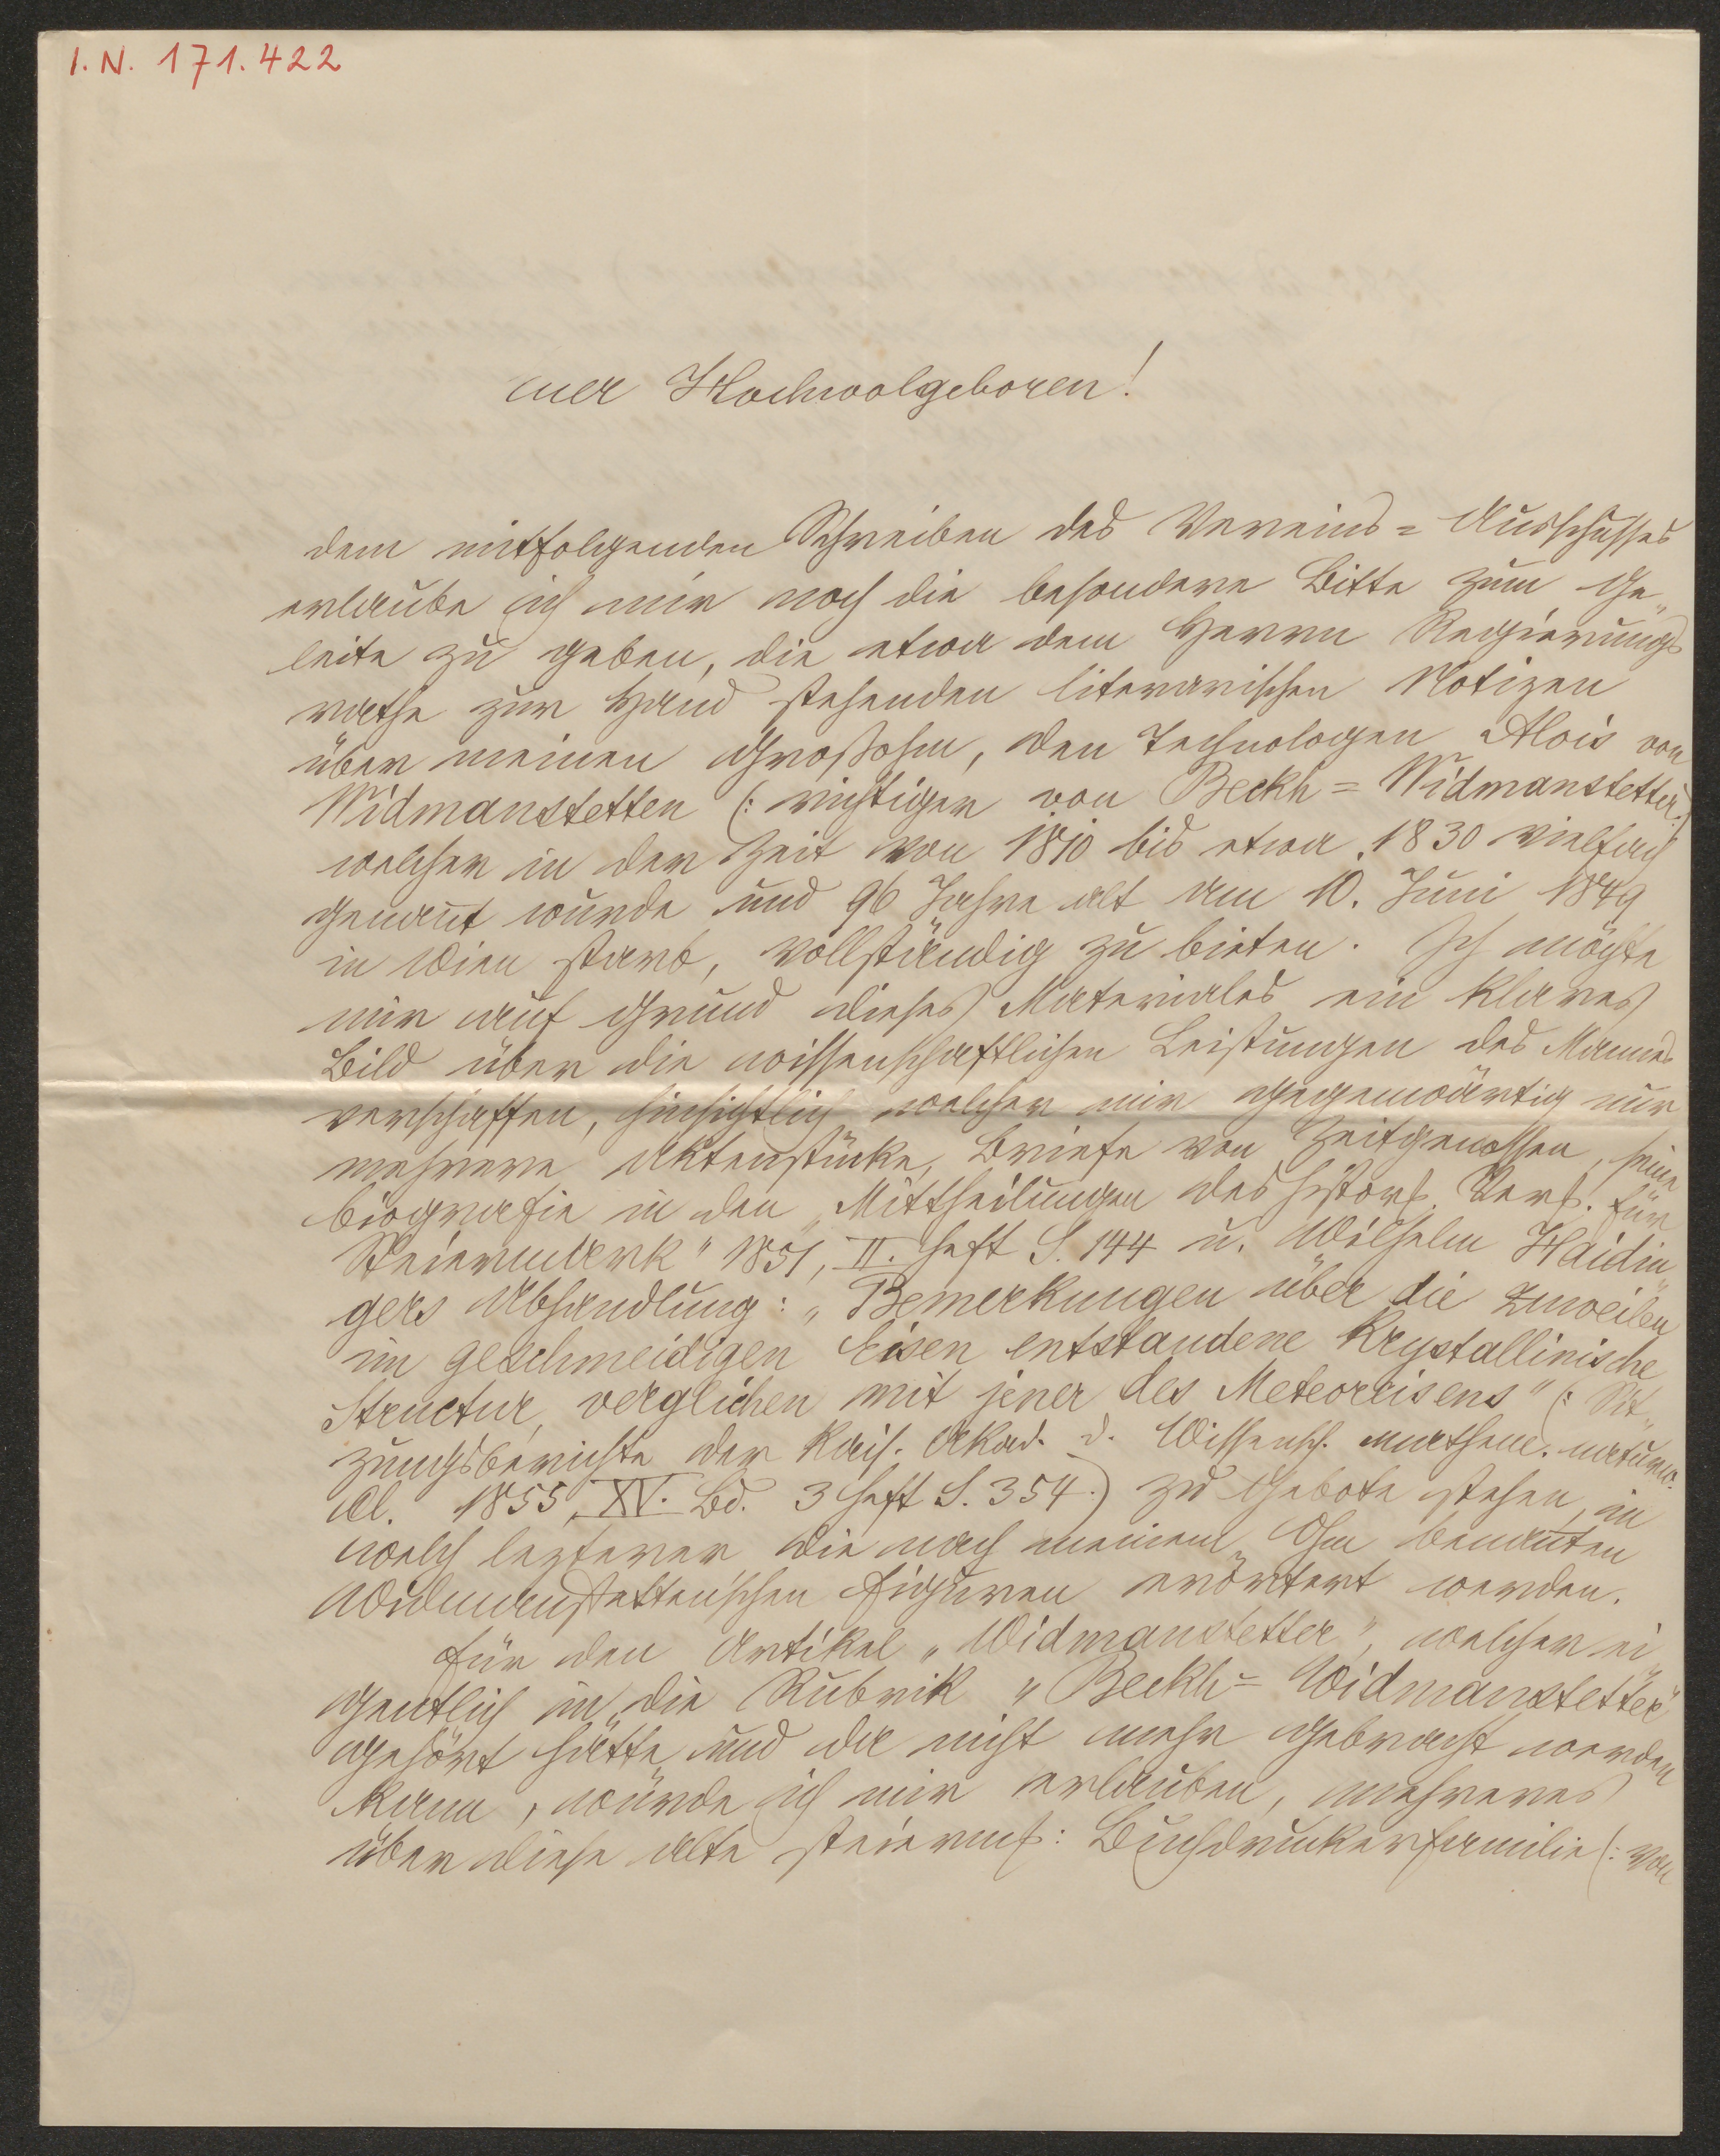 I. N. 171.422
Euer Hochwolgeboren!
dem mitfolgenden Schreiben des Vereins=Ausschusses
erlaube ich mir noch die besondere Bitte zum Ge„
leite zu geben, die etwa dem Herrn Regierungs
rathe zur Hand stehenden literarischen Notizen
über meinen Großohm, den Technologen Alois von
Widmanstetten (: richtiger von Beckh=Widmanstetter:)
welcher in der Zeit von 1810 bis etwa 1830 vielfach
genan̅t wurde und 96 Jahre alt am 10. Juni 1849
in Wien starb, vollständig zu bieten. Ich möchte
mir auf Grund dieses Materiales ein klares
Bild über die wissenschaftlichen Leistungen des Mannes
verschaffen, hinsichtlich welcher mir gegenwärtig nur
mehrere Aktenstücke, Briefe von Zeitgenossen, seine
Biografie in den „Mittheilungen des histor. Ver. für
Steiermark" 1851, II. Heft S. 144 u. Wilhelm Haidin„
gers Abhandlung: „Bemerkungen über die zuweilen
im geschmeidigen Eisen entstandene krystallinische
Structur, verglichen mit jener des Meteoreisens" (: Sit„
zungsberichte der kais. Akad. d. Wissensch. mathem. naturw.
Cl. 1855, XV. Bd. 3 Heft S. 354:) zu Gebote stehen, in
welch lezterer die nach meinem Ohm benan̅ten
Widmanstetten'schen Figuren erörtert werden.
Für den Artikel „Widmanstetter", welcher ei„
gentlich in die Rubrik „Beckh=Widmanstetter"
gehört hätte und da nicht mehr gebracht werden
kann, würde ich mir erlauben, mehreres
über diese alte steierm: Buchdruckerfamilie (: von